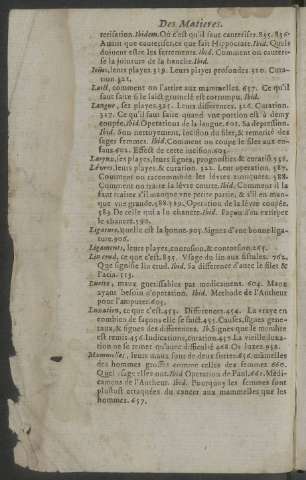 Des Matieres.
terisation. Ibidem. On c'est qu'il faut cauteriser. 835. 836.
Autant que cauteriser, ce que fait Hippocrate. Ibid. Quels
doivent estre les ferrements. Ibid. Comment on cauteri-
se la jointure de la hanche. Ibid.
leurs playes. 319. Leurs playes profondes. 320. Cura-
tion. 321.
Laict, comment on l'attire aux mammelles. 657. Ce qu'il
faut faire si le laict grumelé est corrompu. Ibid.
Langue, ses playes. 325. Leurs differences. 326. Curation.
327. Ce qu'il faut faire quand une portion est à demy
coupée. Ibid. Operations de la langue. 601. Sa depression.
Ibid. Son nettoyement, section du filet, & temerité des
sages femmes. Ibid. Comment on coupe le filet aux en-
fans. 602. Effect de cette incision. 603.
Larynx, ses playes, leurs signes, prognostics & curatiõ. 356.
Lévres, leurs playes, & curation. 322. Leur operation. 587.
Comment on raccommode les lévres coniointes. 588.
Comment on traite la lévre coupée. Ibid. Comment il la
faut traitter s'il manque une petite partie, & s'il en man-
que une grande. 588. 589. Operation de la lévre coupée.
589. De celle qui a la chancre. Ibid. Façon d'en extirper
le chancre. 590.
Ligature, quelle est la bonne. 905. Signes d'une bonne liga-
ture. 906.
Ligaments, leurs playes, contusion, & contorsion. 265.
Lin crud, ce que c'est. 895. Usage du lin aux fistules. 762.
Que signifie lin crud. Ibid. Sa difference d'avec le filet &
l'acia. 513.
Luette, maux guerissables par medicament. 604. Maux
ayant besoin d'operation. Ibid. Methode de l'Autheur
pour l'amputer. 605.
Luxation, ce que c'est. 453. Differences. 454. La vraye en
combien de façons elle se fait. 455. Causes, signes gene-
raux, & signes des differences. Ib. Signes que le membre
est remis. 456. Indications, curation. 457. La vieille luxa-
tion ne se remet qu'avec difficulté 468. Os luxez. 958.
Mammelles, leurs maux sont de deux sortes. 656. mãmelles
des hommes grosses comme celles des femmes 660.
Quel usage elles ont. Ibid Operation de Paul. 661. Medi-
camens de l'Autheur. Ibid. Pourquoy les femmes sont
plustost attaquées du cancer aux mammelles que les
hommes. 657.